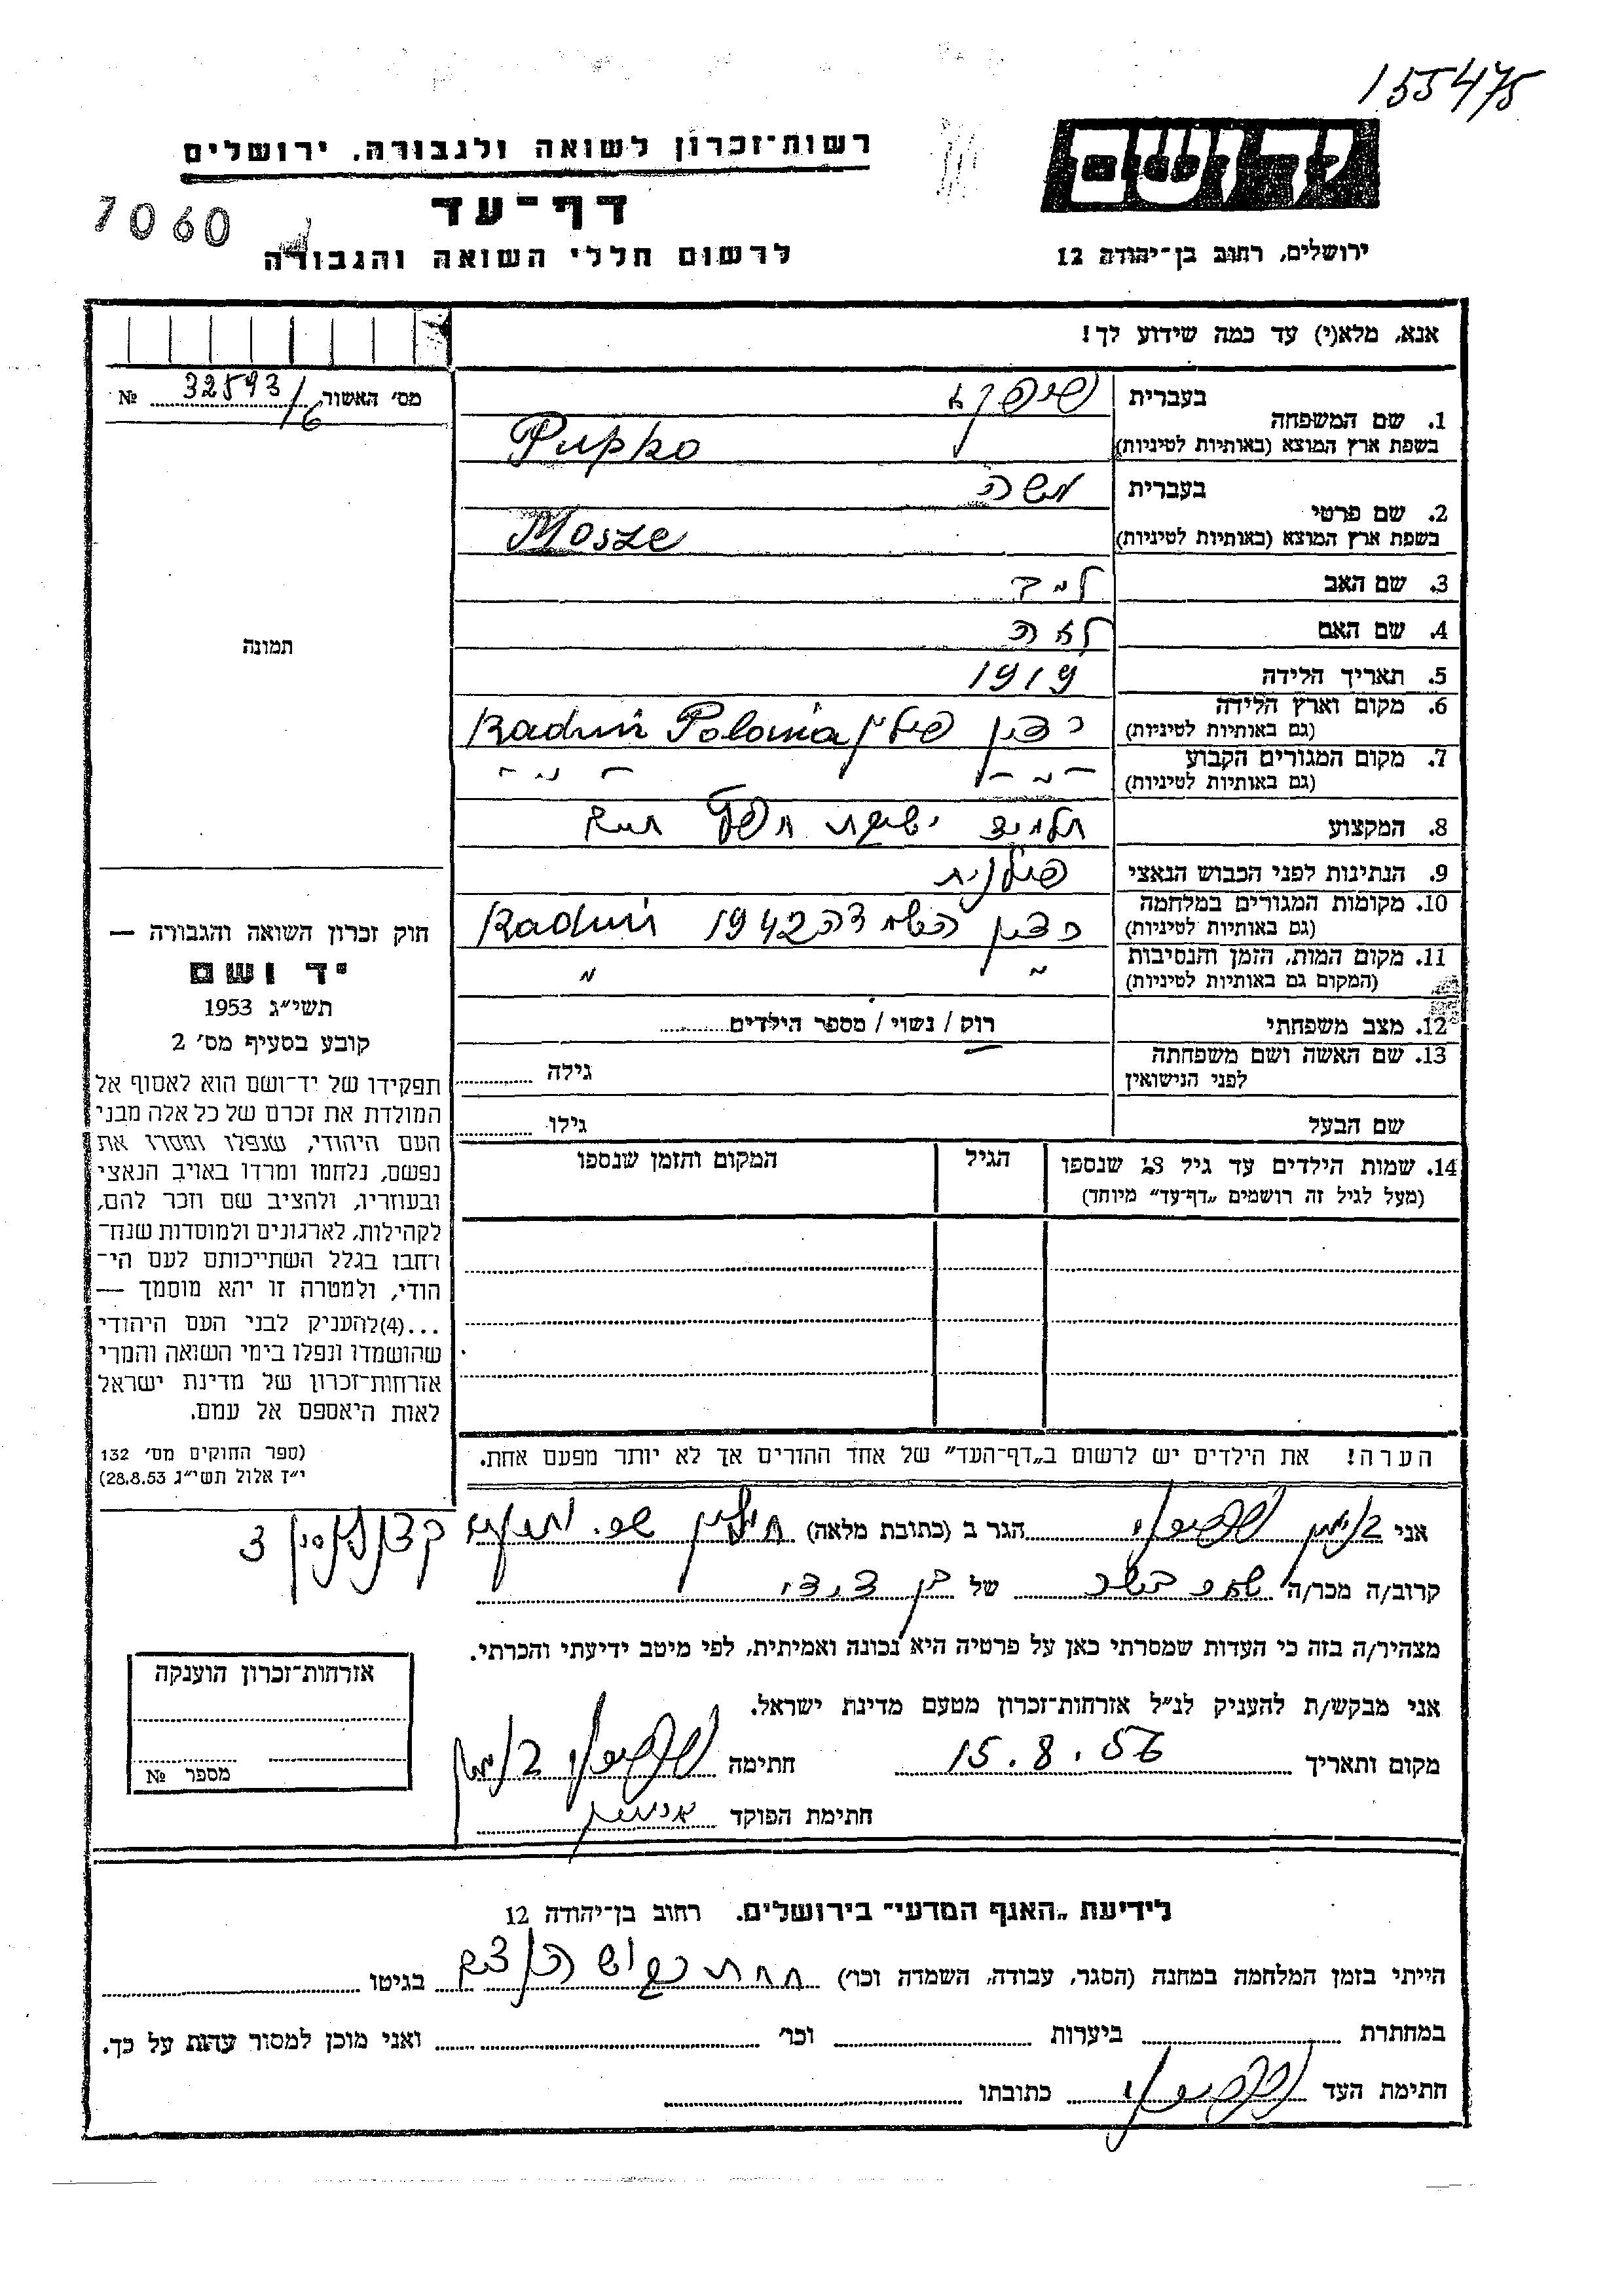 155475
יד ושם
רשות־זכרון לשואה ולגבורה, ירושלים
7060
דף־עד
ירושלים, רחוב בן־יהודה 12
לרשום חללי השואה והגבורה
אנא, מלא(י) עד כמה שידוע לך!
מס׳ האשור 32593/6 №
תמונה
1. שם המשפחה
בעברית
בשפת ארץ המוצא (באותיות לטיניות) Pupko
2. שם פרטי
בעברית משה
בשפת ארץ המוצא (באותיות לטיניות) Mosze
3. שם האב
4. שם האם לאה
5. תאריך הלידה 1919
6. מקום וארץ הלידה
(גם באותיות לטיניות) פולין Raduń Polonia
7. מקום המגורים הקבוע
(גם באותיות לטיניות) - " - - " -
8. המקצוע תלמיד ישיבת חפץ חיים
9. הנתינות לפני הכבוש הנאצי פולנית
10. מקומות המגורים במלחמה
(גם באותיות לטיניות) 1942 Raduń
11. מקום המות, הזמן והנסיבות
(המקום גם באותיות לטיניות) " "
12. מצב משפחתי רוק / נשוי / מספר הילדים
13. שם האשה ושם משפחתה
לפני הנישואין גילה
שם הבעל גילו
14. שמות הילדים עד גיל 18 שנספו
(מעל לגיל זה רושמים „דף־עד” מיוחד)
הגיל
המקום והזמן שנספו
הערה! את הילדים יש לרשום ב„דף־העד” של אחד ההורים אך לא יותר מפעם אחת.
חוק זכרון השואה והגבורה —
יד ושם
תשי״ג 1953
קובע בסעיף מס׳ 2
תפקידו של יד־ושם הוא לאסוף אל
המולדת את זכרם של כל אלה מבני
העם היהודי, שנפלו ומסרו את
נפשם, נלחמו ומרדו באויב הנאצי
ובעוזריו, ולהציב שם וזכר להם,
לקהילות, לארגונים ולמוסדות שנח־
רחבו בגלל השתייכותם לעם הי־
הודי, ולמטרה זו יהא מוסמך —
...(4)להעניק לבני העם היהודי
שהושמדו ונפלו בימי השואה והמרי
אזרחות־זכרון של מדינת ישראל
לאות היאספם אל עמם.
(ספר החוקים מס׳ 132
י״ז אלול תשי״ג 28.8.53)
אני בנימין הגר ב (כתובת מלאה)
קרוב/ה מכר/ה של
מצהיר/ה בזה כי העדות שמסרתי כאן על פרטיה היא נכונה ואמיתית, לפי מיטב ידיעתי והכרתי.
אני מבקש/ת להעניק לנ״ל אזרחות־זכרון מטעם מדינת ישראל.
מקום ותאריך 15.8.56 חתימה
חתימת הפוקד
אזרחות־זכרון הוענקה
מספר №
לידיעת „האגף המדעי” בירושלים. רחוב בן־יהודה 12
הייתי בזמן המלחמה במחנה (הסגר, עבודה, השמדה וכו׳) תחת כבוש בגיטו
במחתרת ביערות וכו׳ ואני מוכן למסור עדות על כך.
חתימת העד כתובתו